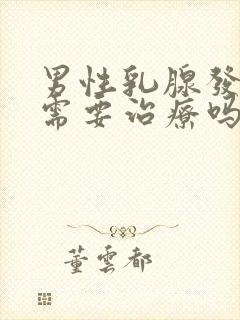 男性乳腺發
需要治療吗
董雲都